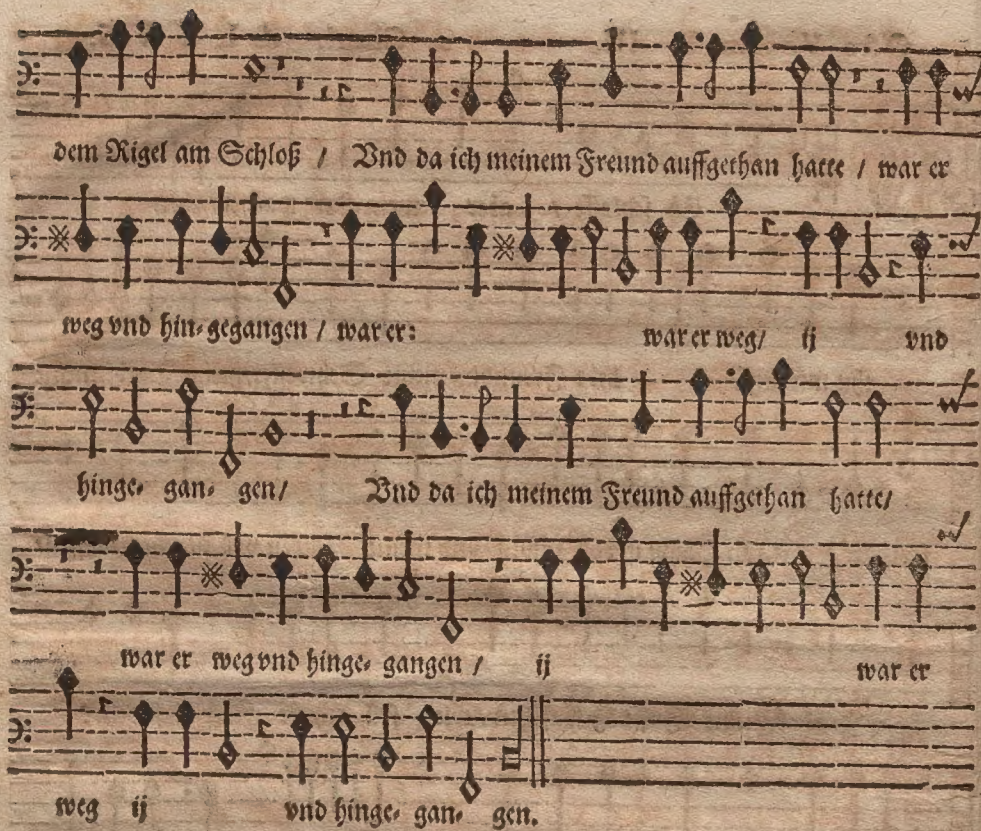 dem Rigel am Schloß / Vnd da ich meinem Freund auffgethan hatte / war er
weg vnd hin-gegangen / war er: war er weg/ ij vnd
hinge- gan- gen/ Vnd da ich meinem Freund auffgethan hatte/
war er weg vnd hinge- gangen / ij war er
weg ij vnd hinge- gan- gen.